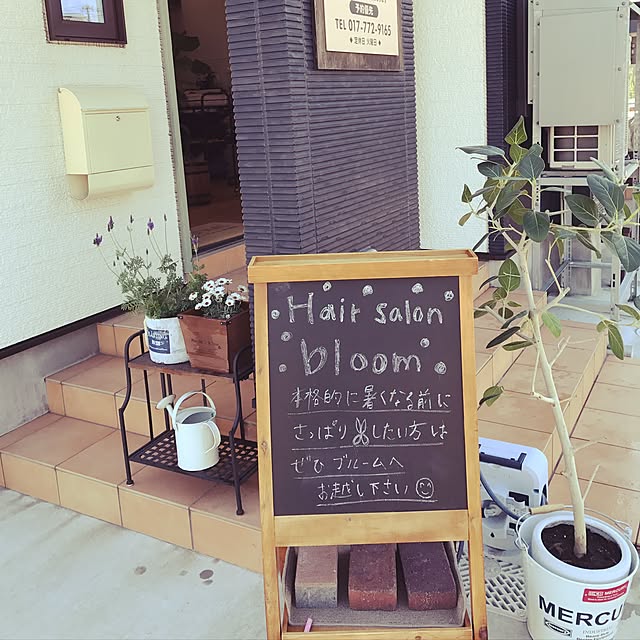 予約優先
TEL 017-772-9165
定休日 火曜日
Hair salon
bloom
本格的に暑くなる前に
さっぱりしたい方は
ぜひブルームへ
お越し下さい
MERCU